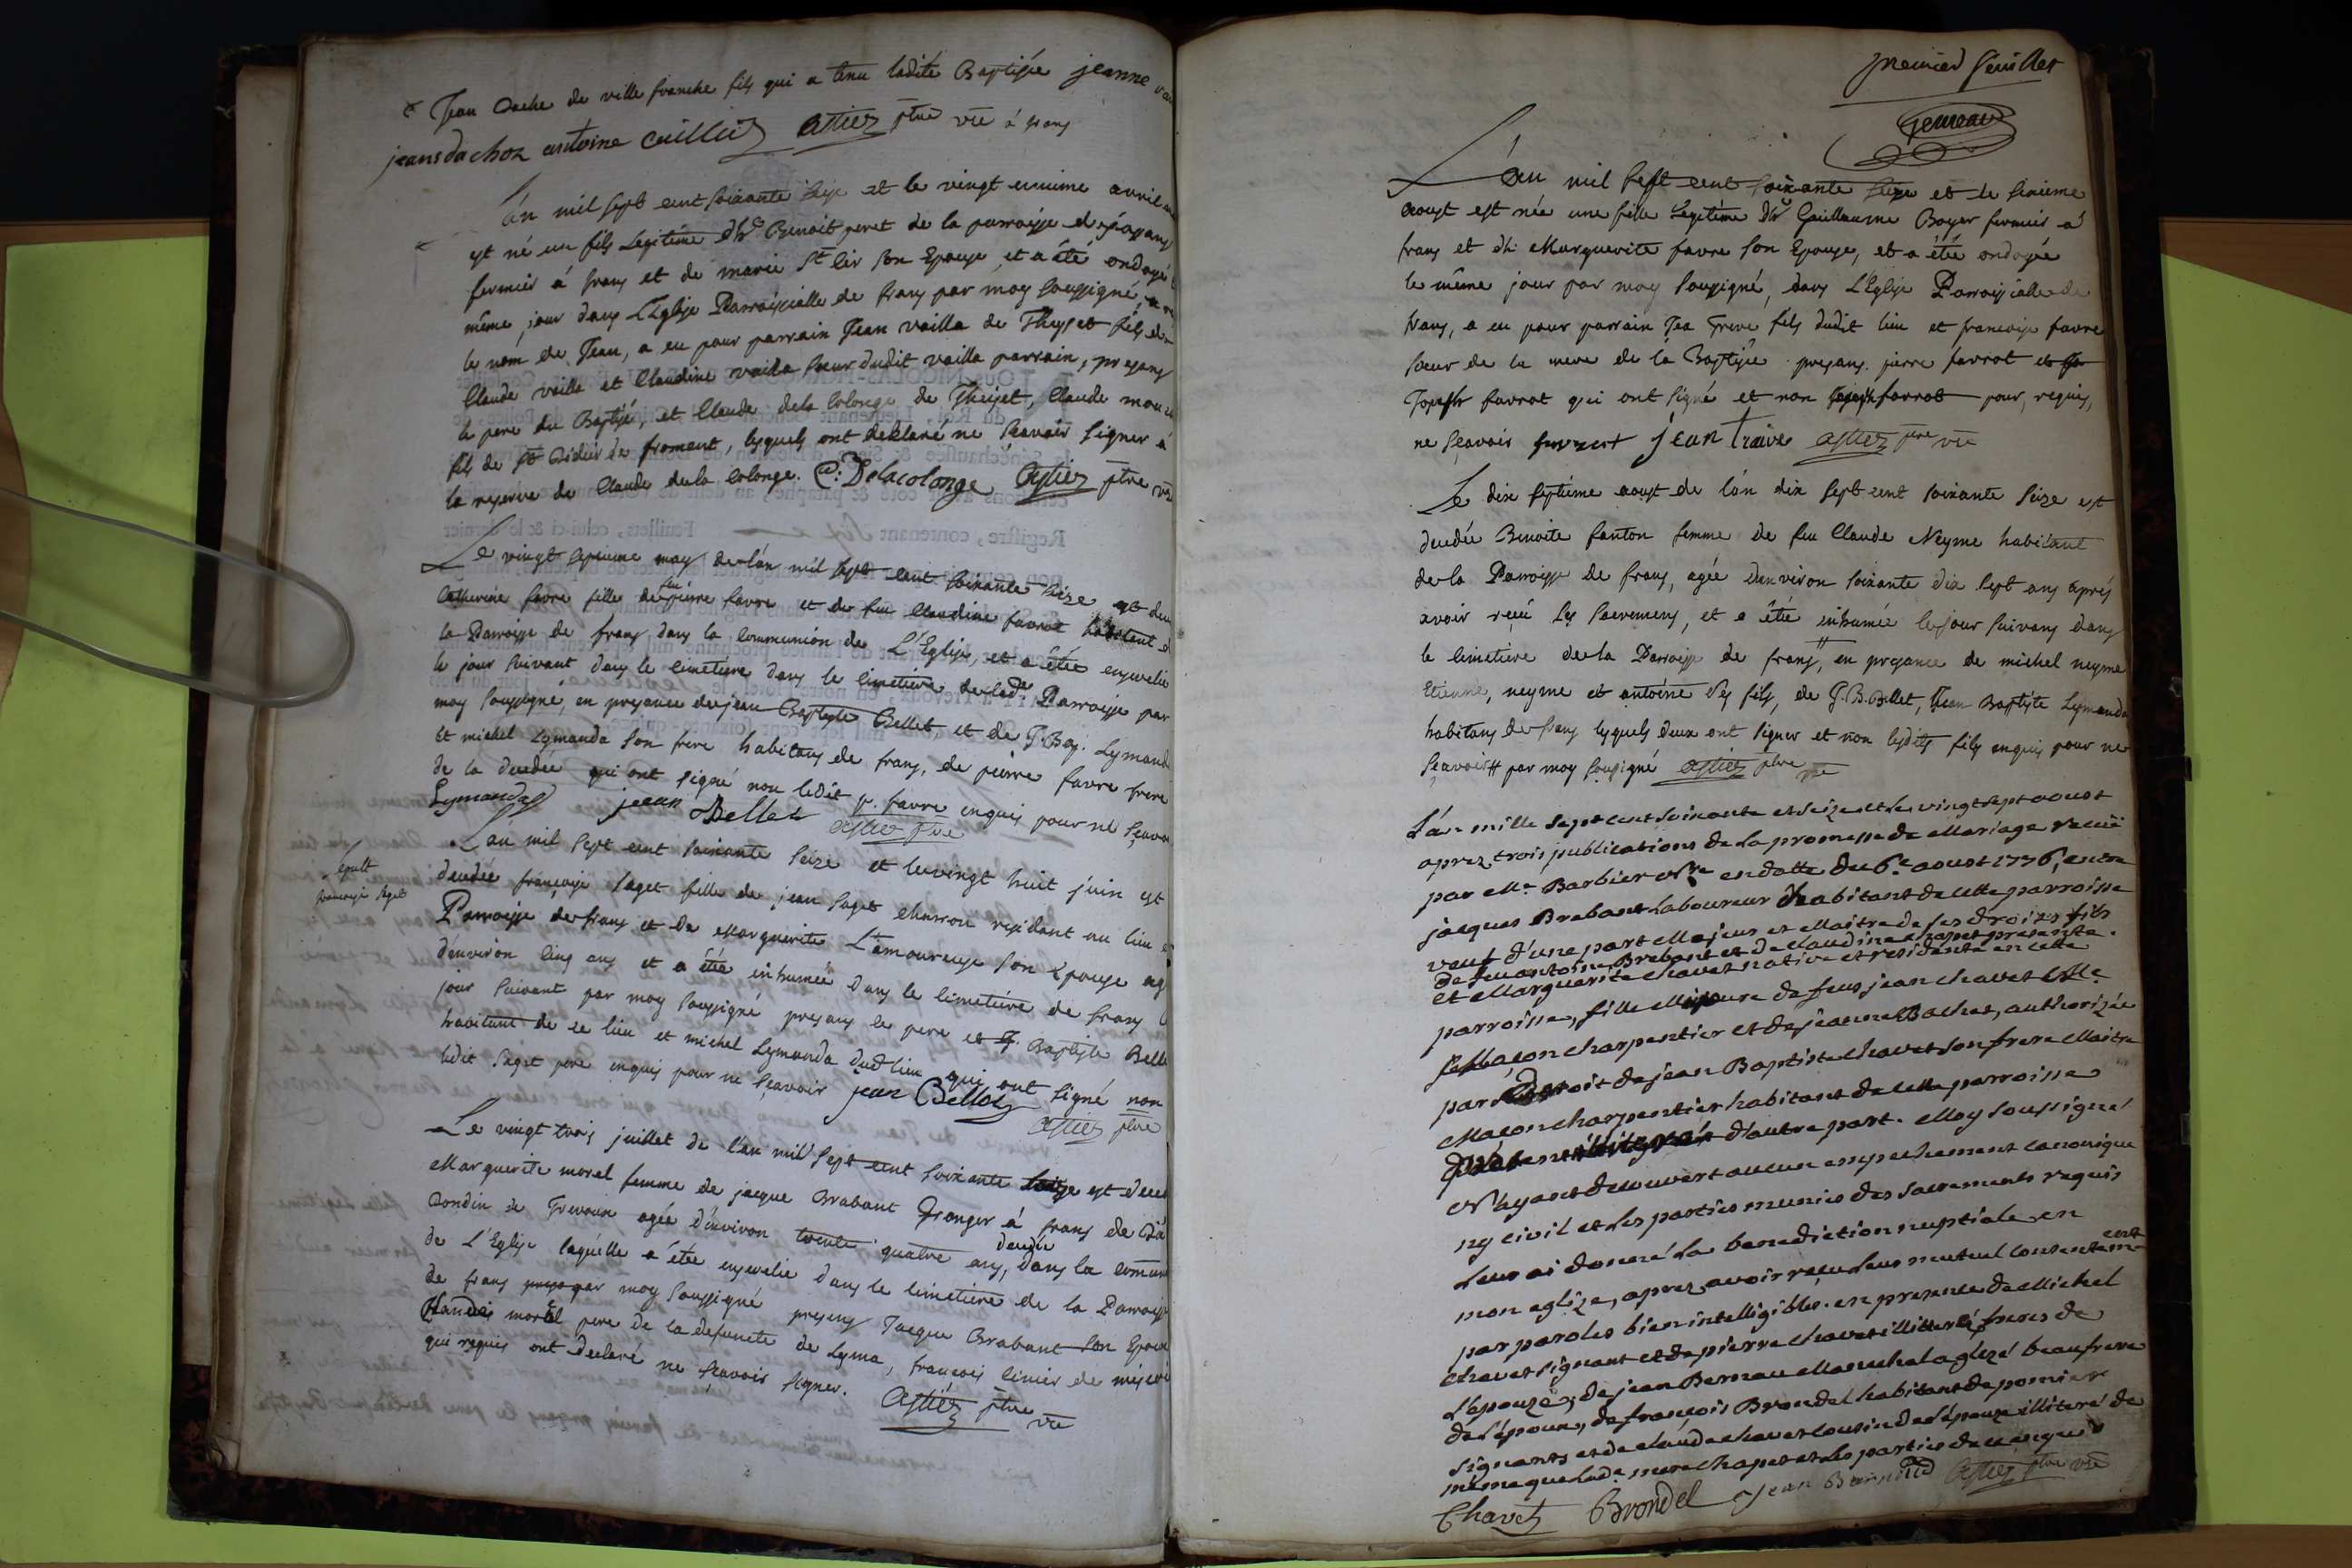 Jean Dache de ville franche fils qui a tenu ladite Baptisée jeanne
jeans dachoz antoine cuillier astier ptre vre á frans
L'án mil sept cent soixante seize et le vingt avril
est né un fils Legitime Benoit peret de la parroisse
fermier á frans et de marie St Cir son Epouse, et a été ondoyé
même jour dans L'Eglise Parroissialle de frans par moy soussigné,
le nom de Jean, a eu pour parrain Jean vailla de Theyset fils de
Claude vailla et Claudine vailla soeur dudit vailla parrain, presans
le pere du Baptisé, et Claude dela Colonge de Theyset, Claude
fils de St Didier de froment, lesquels ont deklaré ne sçavoir signer á
la reserve de Claude dela Colonge. C: Delacolonge Astier ptre vre
Le vingt septieme may de lán mil sept cent soixante seize est
Catherine favre fille de feu pierre favre et de feu Claudine favrot habitant
la Parroisse de frans dans la Communion de L'Eglise, et a été ensevelie
le jour suivant dans le cimetiere dans le cimetiere de lade Parroisse par
moy soussigné, en presence de jean Baptiste Bellet et de J. Bap. Lymand
et michel Lymanda son frere habitans de frans, de pierre favre frere
de la decedée qui ont signé non ledit p. favre enquis pour ne sçavoir
Lymandas jean Bellet astier ptre
L'an mil sept cent soixante seize et le vingt huit juin est
Sepult
francoise Saget
decedée françoise Saget fille de jean Saget charron residant au lieu
Parroisse de frans et de Marguerite L'amoureuse son Epouse
d'environ cinq ans et a été inhumée dans le cimetiére de frans
jour suivant par moy soussigné presans le pere et J. Baptiste Belle
habitant de ce lieu et michel Lymanda dud lieu qui ont signé non
ledit Saget pere enquis pour ne sçavoir jean Bellet astier ptre
Le vingt trois juillet de l'an mil sept cent soixante seize est
Marguerite morel femme de jacque Brabant Granger á frans
de Trevoux agée d'environ trente quatre ans, decedée dans la
de L'Eglise laquelle a été ensevelie dans le cimetiere de la Parroisse
de frans par moy soussigné presens Jacque Brabant son Epoux
morel pere de la defuncte de Lyma, francois
qui requis ont declaré ne sçavoir signer. Astier ptre vre
premier feuillet
Jemeau
L'án mil sept cent soixante seize et le seizieme
aoust est née une fille Legitime Guillaume Boyer fermier á
frans et Marguerite favre son Epouse, et a étée ondoyée
le même jour par moy soussigné, dans L'Eglise Parroissialle de
frans, a eu pour parrain Jea Treve fils dudit lieu et francoise favre
soeur de la mere de la Baptisée presans pierre favrot et
Joseph favrot qui ont signé et non Joseph favrot pour, requis,
ne sçavoir favrot jean traive astier ptre vre
Le dix septiéme aoust de lán dix sept cent soixante seize est
decedée Benoite fanton femme de feu Claude Neyme habitant
de la Parroisse de frans, agée d'environ soixante dix sept ans aprés
avoir reçu les sacremens, et a étée inhumée le jour suivans dans
le Cimetiere de la Parroisse de frans, # en presence de michel neyme
Etienne, neyme et antoine ses fils, de J. B. Bellet, Jean Baptiste Lymanda
habitans de frans lesquels deux ont signer et non lesdits fils enquis pour ne
sçavoir # par moy soussigné astier ptre vre
L'án mille sept cent soixante et seize et le vingt sept aoust
aprez trois publications de la promesse de Mariage recuë
par Me Barbier en datte du 6e aoust 1776, entre
jacques Brabant Laboureur habitant de cette parroisse
veuf d'une part Majeur et Maitre de ses droits fils
de feu antoine Brabant et de claudine chapet presente.
et Marguerite chavet native et residente en cette
parroisse, fille Majeure de feus jean chavet
Maçon charpentier et de jeanne Bachet, authorizée
par de jean Baptiste chavet son frere Maitre
Maçon charpentier habitant de cette parroisse
d'autre part. Moy soussigné
N'ayant decouvert aucun empechement canonique
ny civil et les parties munies des sacrements requis
leur ai donné la benediction nuptiale en
mon eglize, aprez avoir reçu leur mutuel consentement
par paroles bien intelligibles. en presence de Michel
chavet signant et de pierre chavet illitteré freres de
L'epouze, de jean Bernau Marechal a glezé beaufrere
de L'époux, de françois Brondel habitant de pomier
signants et de claude chavet cousin de L'épouze illiteré de
même que lade mere chapet et les parties de ce enquis
Chavet Brondel Jean Bernaud Astier ptre vre